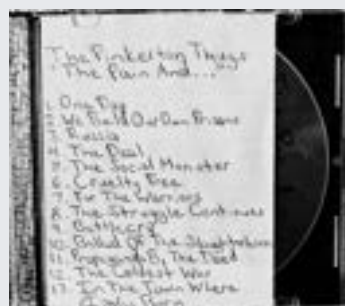 The Pinkerton Thugs
"The Pain And..."
1. One Day
2. We Build Our Own Prisons
3. Russia
4. The Deal
5. The Social Monster
6. Cruelty Free
7. For The Warriors
8. The Struggle Continues
9. Battlecry
10. Ballad Of The
11. Propaganda By The Deed
12. The Coldest War
13. In The Town Where
Born